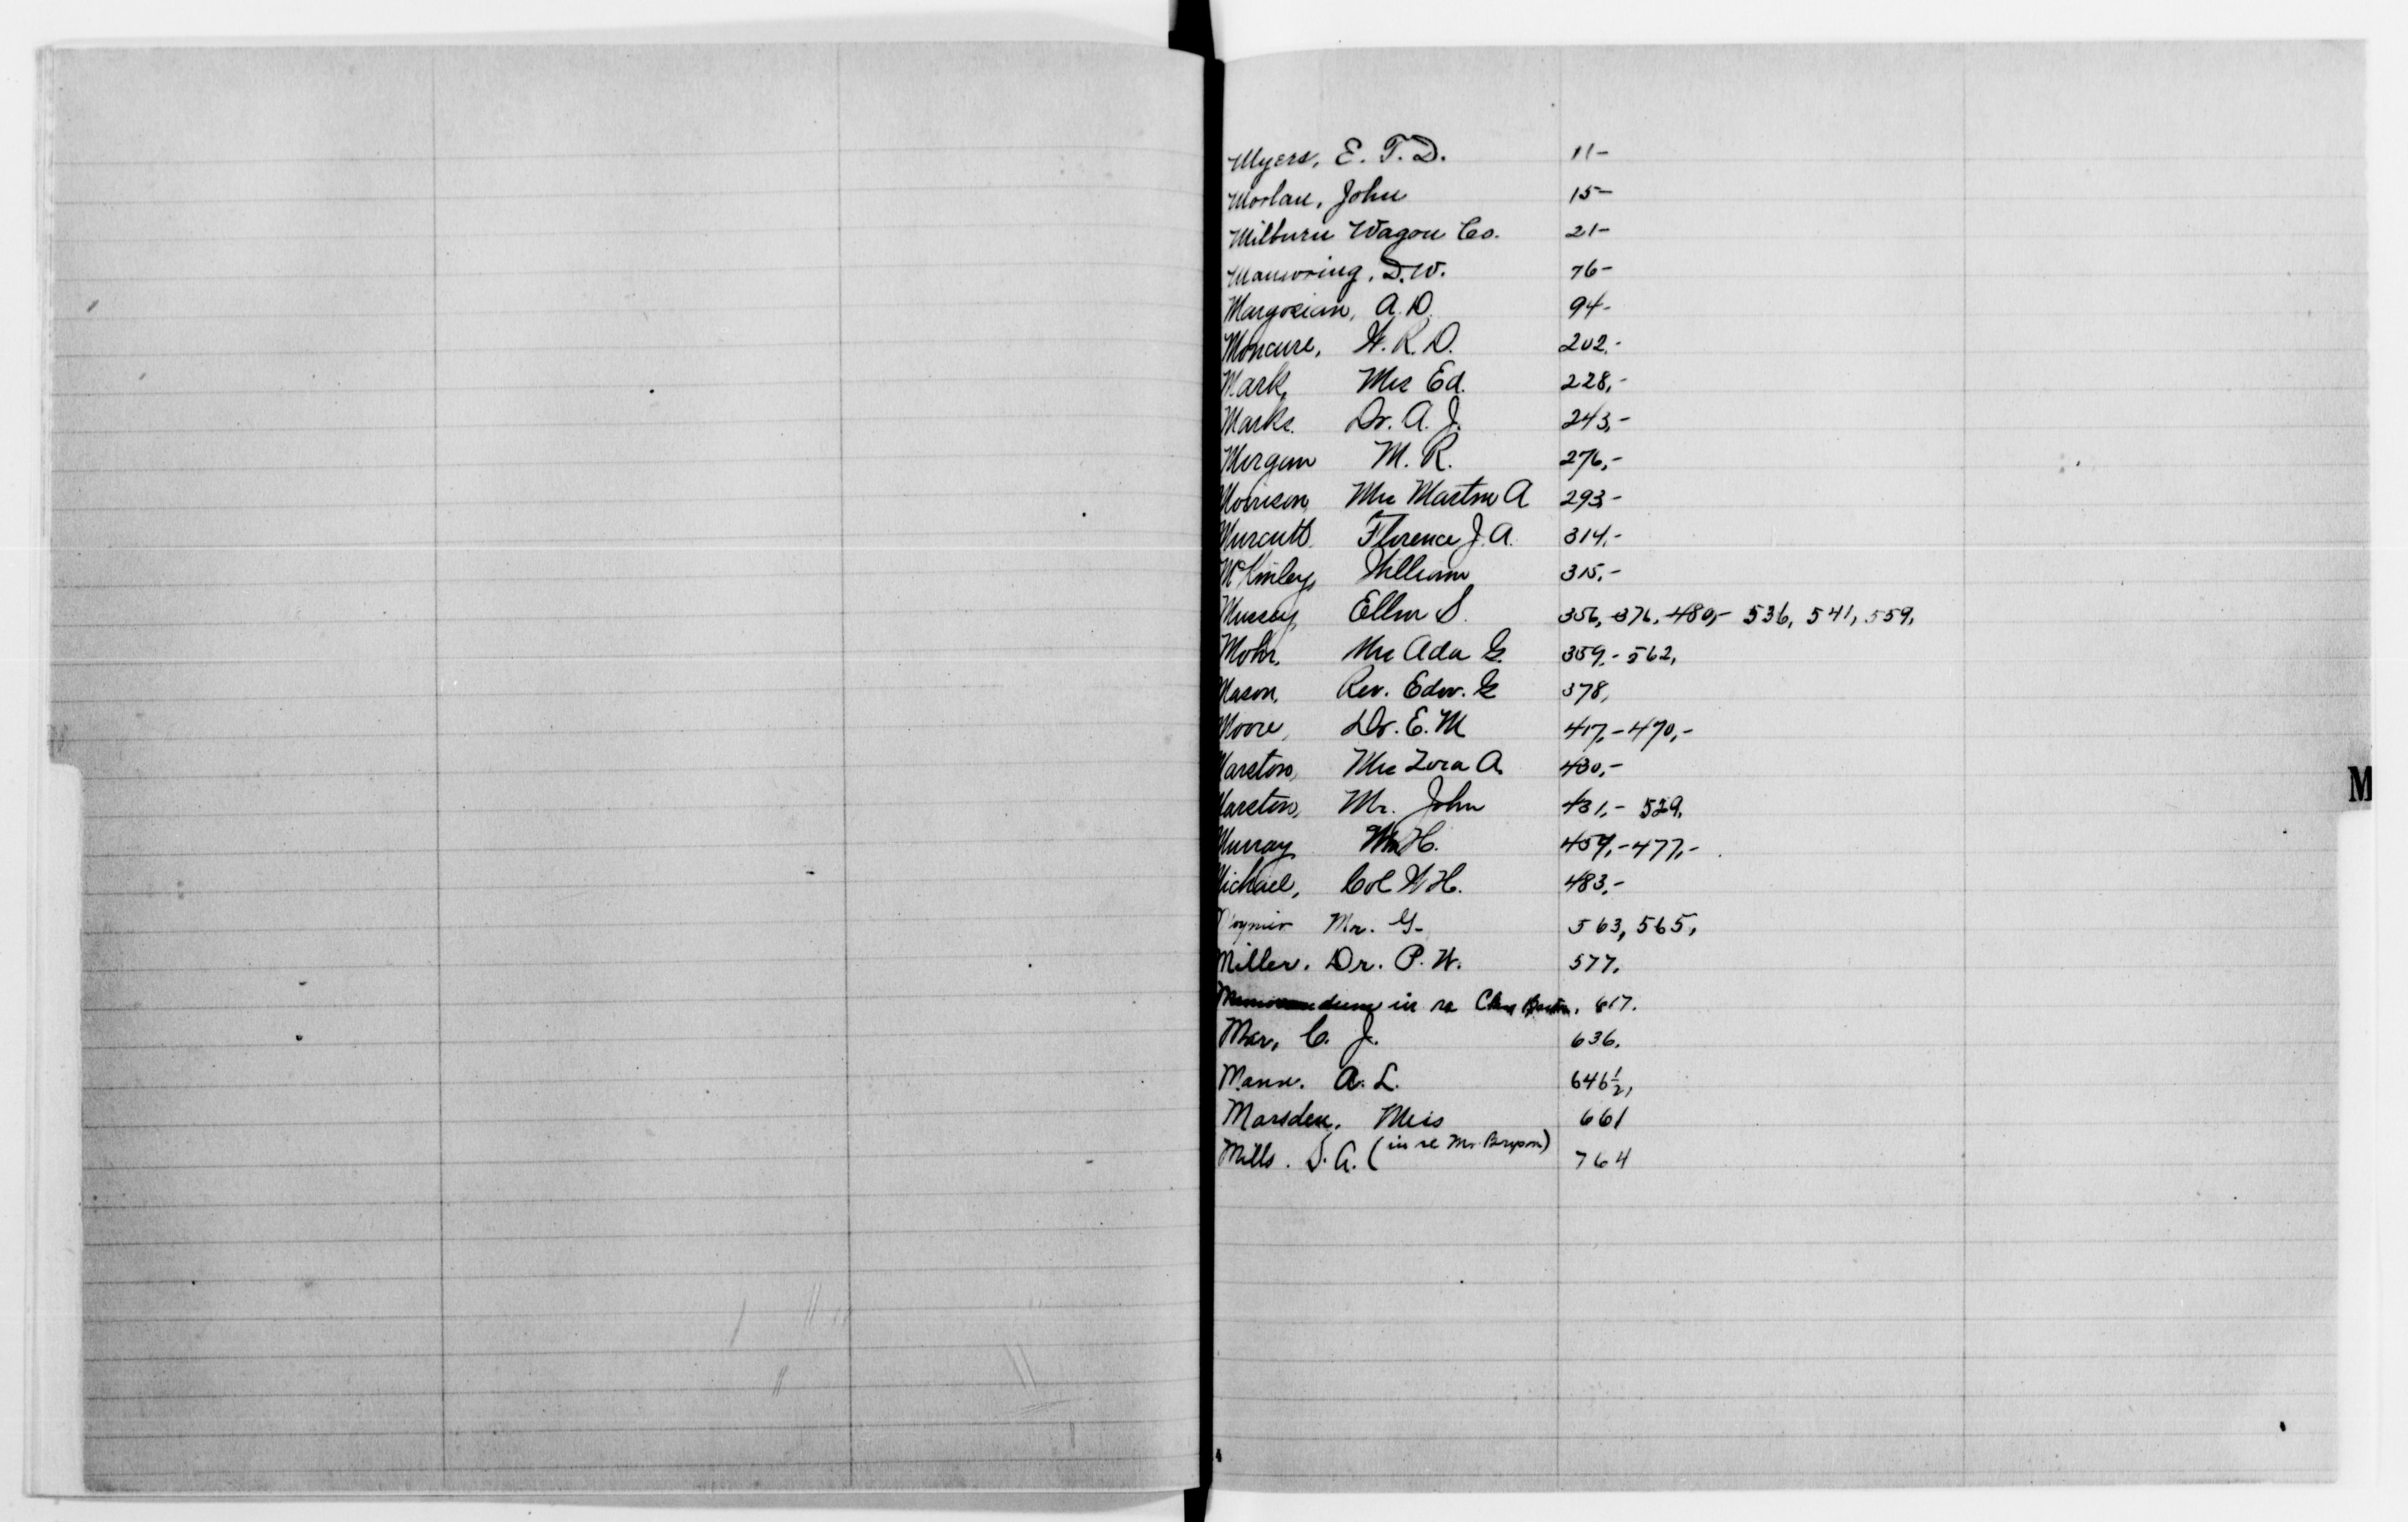 Myers, E. T. D. 11-
Morlan, John 15-
Milburn Wagon Co. 21-
Manwring, D. W. 76-
Margosian, A. D. 94-
Moncure, W. R. D. 202.-
Mark, Mrs Ed. 228,-
Marks. Dr. A. J. 243,-
Morgan M. R. 276,-
Morrison, Mrs Martin A 293-
Murcutt. Florence J. A. 314.-
McKinley, William 315.-
Mussey Ellen S. 356, 376, 480,- 536, 541, 559,
Mohr, Mrs Ada G. 359.- 562,
Mason, Rev. Edw. G 378,
Moore, Dr. E. M 417,- 470,-
Marston, Mrs Zora A. 430,-
Marston, Mr. John 431,- 529.
Murray Wm H. 459,- 477,-
Michael, Col W H. 483,-
Mr. G- 563, 565,
Miller. Dr. P. W. 577.
Memorandum in re Clara Barton. 617.
Mar, C. J. 636.
Mann. A. L. 646½,
Marsden, Miss 661
Mills. S. A. (in re Mr. Bryson) 764
M